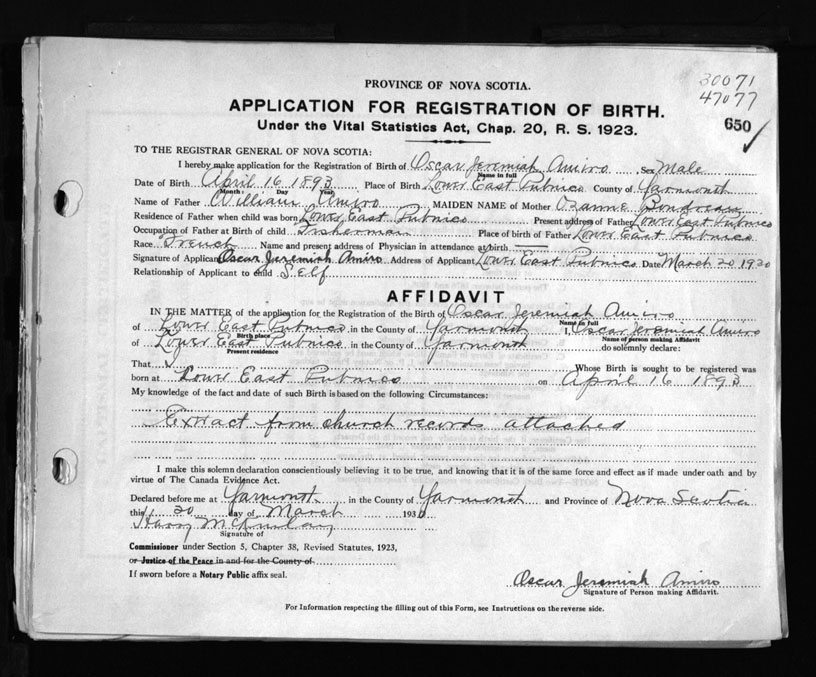 30071
47077
650
PROVINCE OF NOVA SCOTIA.
APPLICATION FOR REGISTRATION OF BIRTH.
Under the Vital Statistics Act, Chap. 20, R. S. 1923.
TO THE REGISTRAR GENERAL OF NOVA SCOTIA:
I hereby make application for the Registration of Birth of Oscar Jeremiah Amiro Sex Male
Name in full
Date of Birth April 16 1893 Place of Birth Lower East Pubnico County of Yarmouth
Month Day Year
Name of Father William Amiro MAIDEN NAME of Mother Ozanne
Residence of Father when child was born Lower East Pubnico Present address of Father Lower East Pubnico
Occupation of Father at Birth of child Fisherman Place of birth of Father Lower East Pubnico
Race French Name and present address of Physician in attendance at birth
Signature of Applicant Oscar Jeremiah Amiro Address of Applicant Lower East Pubnico Date March 20 1930
Relationship of Applicant to child Self
AFFIDAVIT
IN THE MATTER of the application for the Registration of the Birth of Oscar Jeremiah Amiro
Name in full
of Lower East Pubnico in the County of Yarmouth I, Oscar Jeremiah Amiro
Birth place Name of person making Affidavit
of Lower East Pubnico in the County of Yarmouth do solemnly declare:
Present residence
That I Whose Birth is sought to be registered was
born at Lower East Pubnico on April 16 1893
My knowledge of the fact and date of such Birth is based on the following Circumstances:
Extract from church records attached
I make this solemn declaration conscientiously believing it to be true, and knowing that it is of the same force and effect as if made under oath and by
virtue of The Canada Evidence Act.
Declared before me at Yarmouth in the County of Yarmouth and Province of Nova Scotia
this 20 day of March 1930
Harry McKinlay
Signature of
Commissioner under Section 5, Chapter 38, Revised Statutes, 1923,
or Justice of the Peace in and for the County of
If sworn before a Notary Public affix seal.
Oscar Jeremiah Amiro
Signature of Person making Affidavit.
For Information respecting the filling out of this Form, see Instructions on the reverse side.